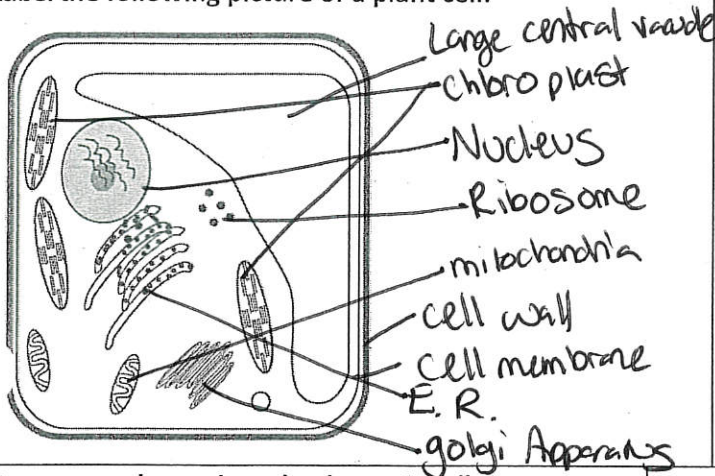 Label the following picture of a plant cell
Large central vacuole
chloroplast
Nucleus
Ribosome
mitochondria
cell wall
cell membrane
E. R.
golgi Apparatus